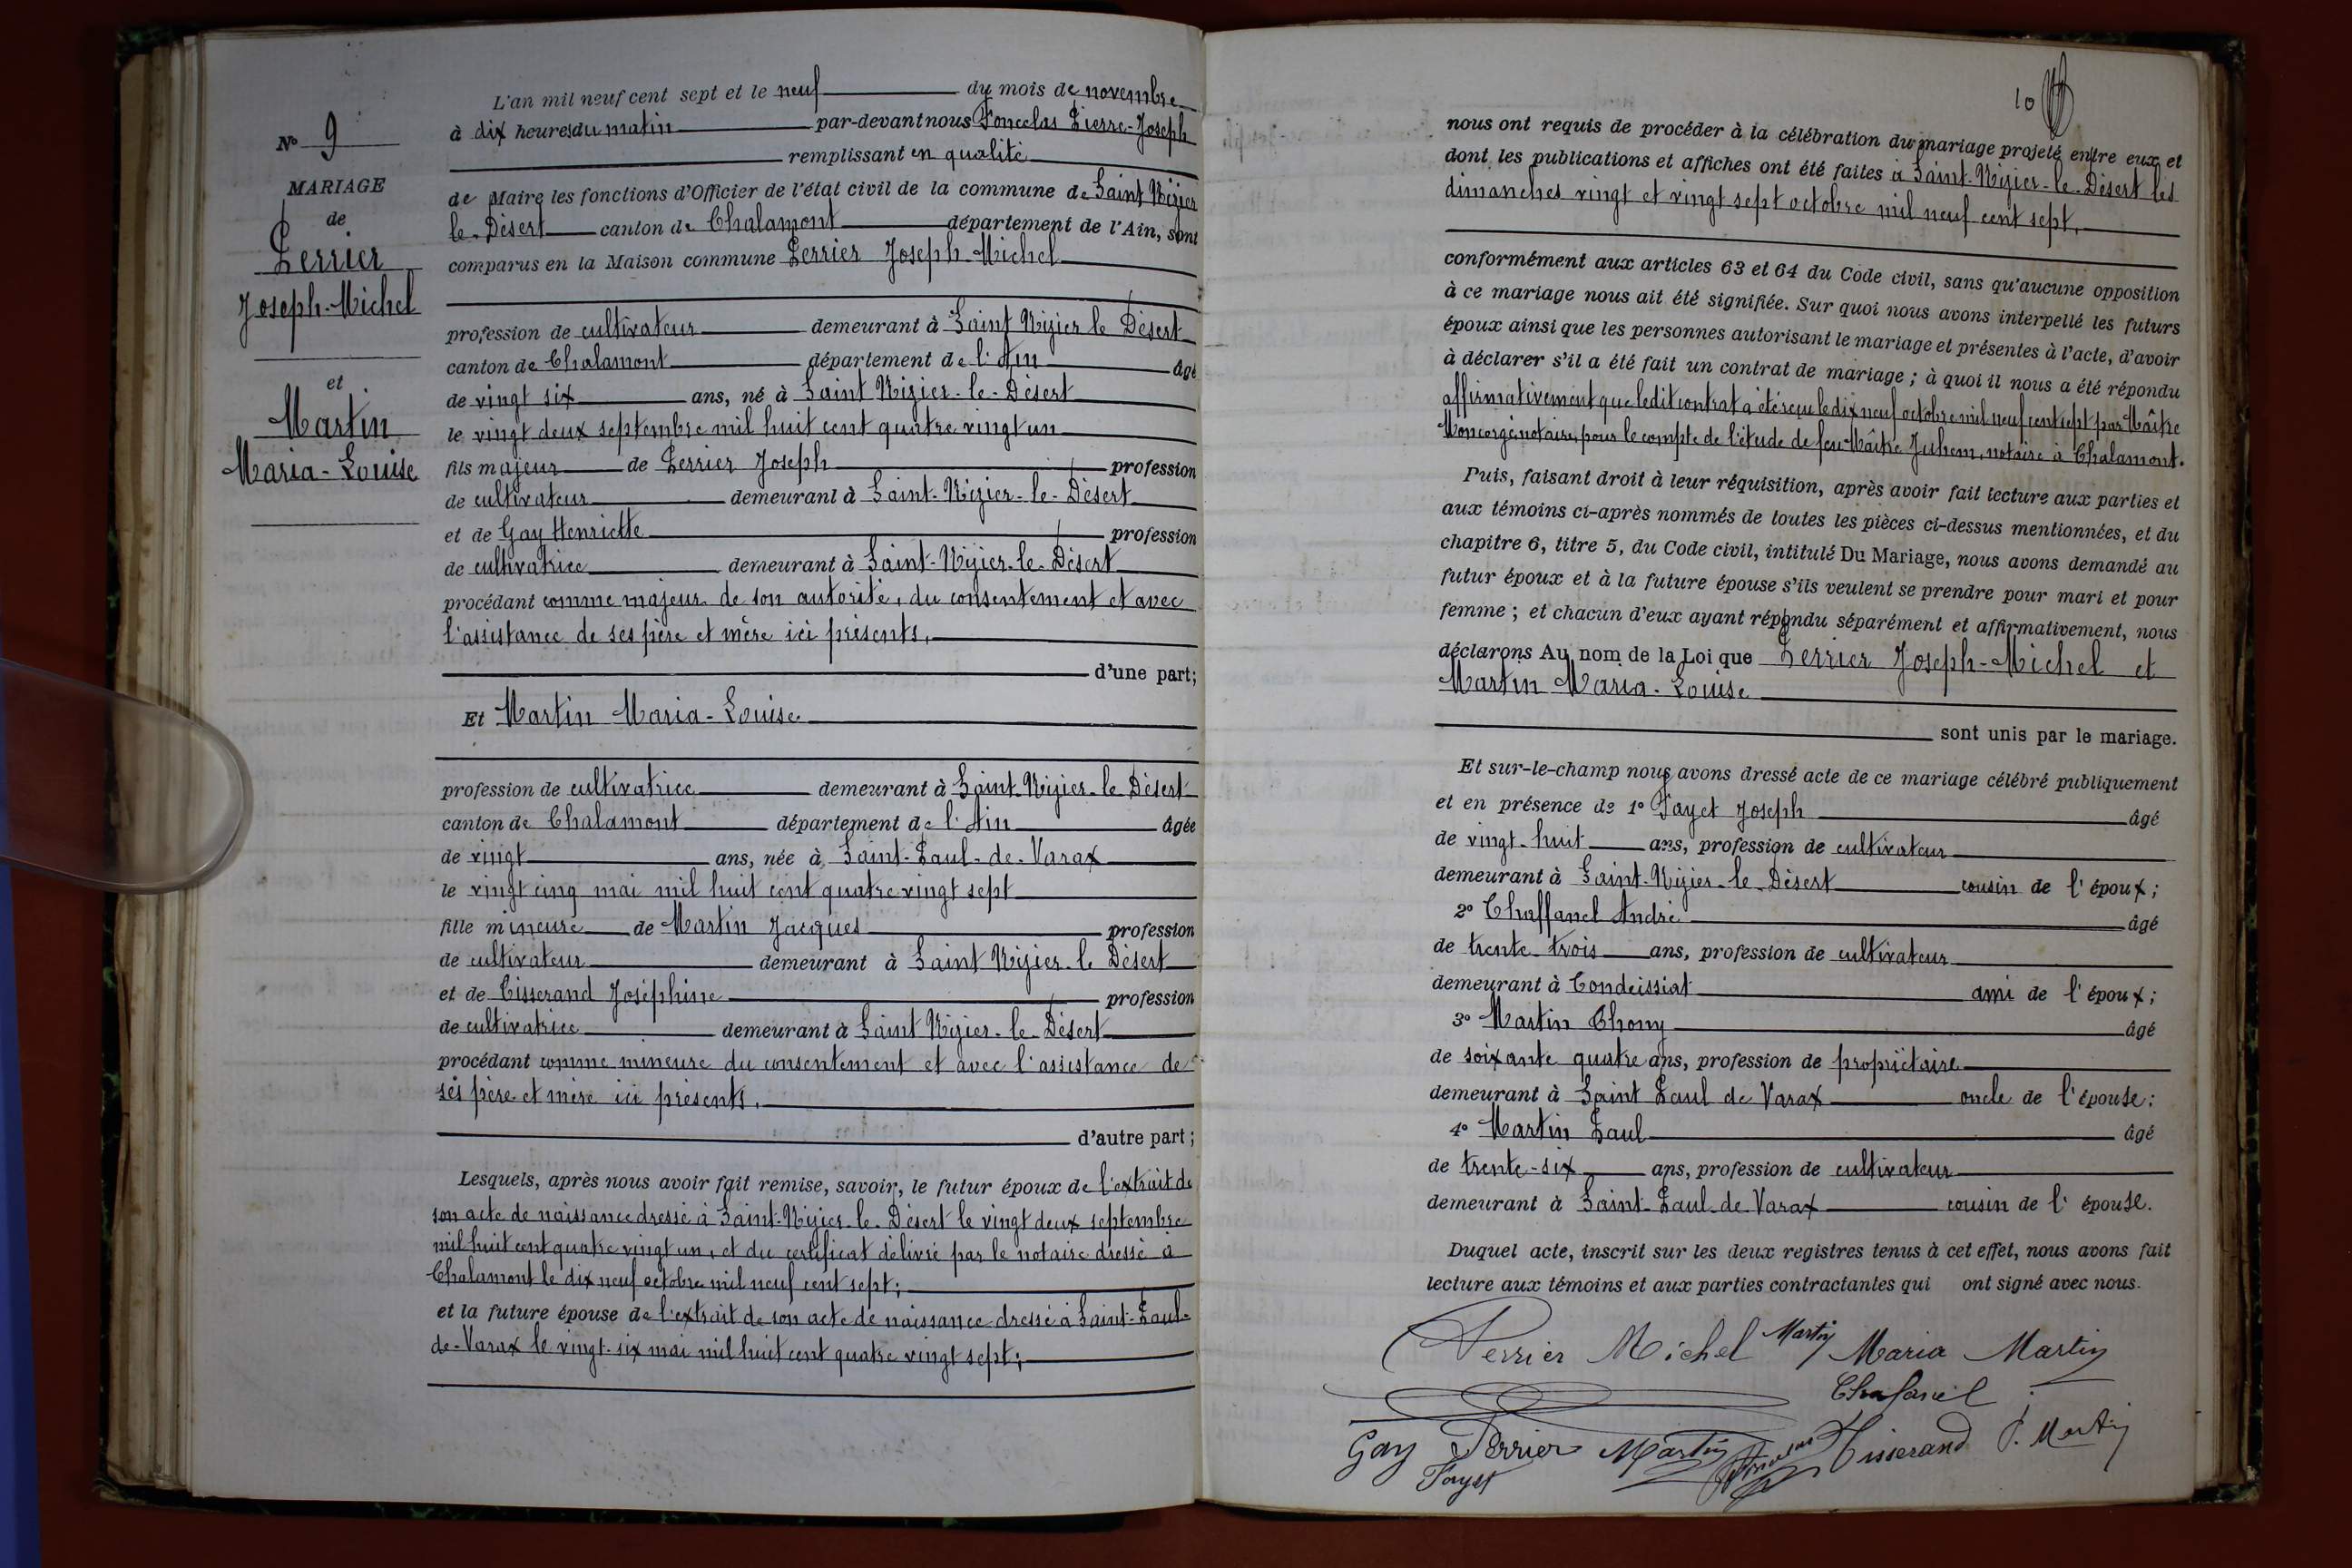 N° 9
MARIAGE
de
Perrier
Joseph-Michel
et
Martin
Maria-Louise
L'an mil neuf cent sept et le neuf du mois de novembre
à dix heures du matin par-devant nous Fonceclas Pierre-Joseph
remplissant en qualité
de Maire les fonctions d'Officier de l'état civil de la commune de Saint Nizier
le-Désert canton de Chalamont département de l'Ain, sont
comparus en la Maison commune Perrier Joseph-Michel
profession de cultivateur demeurant à Saint Nizier le Désert
canton de Chalamont département de l'Ain âgé
de vingt six ans, né à Saint Nizier-le-Désert
le vingt deux septembre mil huit cent quatre vingt un
fils majeur de Perrier Joseph profession
de cultivateur demeurant à Saint-Nizier-le-Désert
et de Gay Henriette profession
de cultivatrice demeurant à Saint-Nizier-le-Désert
procédant comme majeur de son autorité, du consentement et avec
l'assistance de ses père et mère ici présents,
d'une part;
Et Martin Maria-Louise
profession de cultivatrice demeurant à Saint-Nizier-le Désert
canton de Chalamont département de l'Ain âgée
de vingt ans, née à Saint-Paul-de-Varax
le vingt cinq mai mil huit cent quatre vingt sept
fille mineure de Martin Jacques profession
de cultivateur demeurant à Saint Nizier-le Désert
et de Tisserand Joséphine profession
de cultivatrice demeurant à Saint Nizier-le-Désert
procédant comme mineure du consentement et avec l'assistance de
ses père et mère ici présents.
d'autre part;
Lesquels, après nous avoir fait remise, savoir, le futur époux de l'extrait de
son acte de naissance dressé à Saint-Nizier-le-Désert le vingt deux septembre
mil huit cent quatre vingt un, et du certificat délivré par le notaire dressé à
Chalamont le dix neuf octobre mil neuf cent sept;
et la future épouse de l'extrait de son acte de naissance dressé à Saint-Paul-
de-Varax le vingt-six mai mil huit cent quatre vingt sept;
10
nous ont requis de procéder à la célébration du mariage projeté entre eux et
dont les publications et affiches ont été faites à Saint-Nizier-le-Désert les
dimanches vingt et vingt sept octobre mil neuf cent sept,
conformément aux articles 63 et 64 du Code civil, sans qu'aucune opposition
à ce mariage nous ait été signifiée. Sur quoi nous avons interpellé les futurs
époux ainsi que les personnes autorisant le mariage et présentes à l'acte, d'avoir
à déclarer s'il a été fait un contrat de mariage; à quoi il nous a été répondu
affirmativement que ledit contrat a été reçu le dix neuf octobre mil neuf cent sept par Maître
Moncorgé notaire, pour le compte de l'étude de feu Maître Juhem, notaire à Chalamont.
Puis, faisant droit à leur réquisition, après avoir fait lecture aux parties et
aux témoins ci-après nommés de toutes les pièces ci-dessus mentionnées, et du
chapitre 6, titre 5, du Code civil, intitulé Du Mariage, nous avons demandé au
futur époux et à la future épouse s'ils veulent se prendre pour mari et pour
femme; et chacun d'eux ayant répondu séparément et affirmativement, nous
déclarons Au nom de la Loi que Perrier Joseph-Michel et
Martin Maria-Louise
sont unis par le mariage.
Et sur-le-champ nous avons dressé acte de ce mariage célébré publiquement
et en présence de 1° Fayet Joseph âgé
de vingt-huit ans, profession de cultivateur
demeurant à Saint-Nizier-le-Désert cousin de l'époux;
2° Chaffanel André âgé
de trente trois ans, profession de cultivateur
demeurant à Condeissiat ami de l'époux;
3° Martin Thony âgé
de soixante quatre ans, profession de propriétaire
demeurant à Saint Paul de Varax oncle de l'épouse;
4° Martin Paul âgé
de trente-six ans, profession de cultivateur
demeurant à Saint-Paul-de-Varax cousin de l'épouse.
Duquel acte, inscrit sur les deux registres tenus à cet effet, nous avons fait
lecture aux témoins et aux parties contractantes qui ont signé avec nous.
Perrier Michel Martin Maria Martin
Chafanel
Gay Perrier Martin Tisserand P. Martin
Fayet